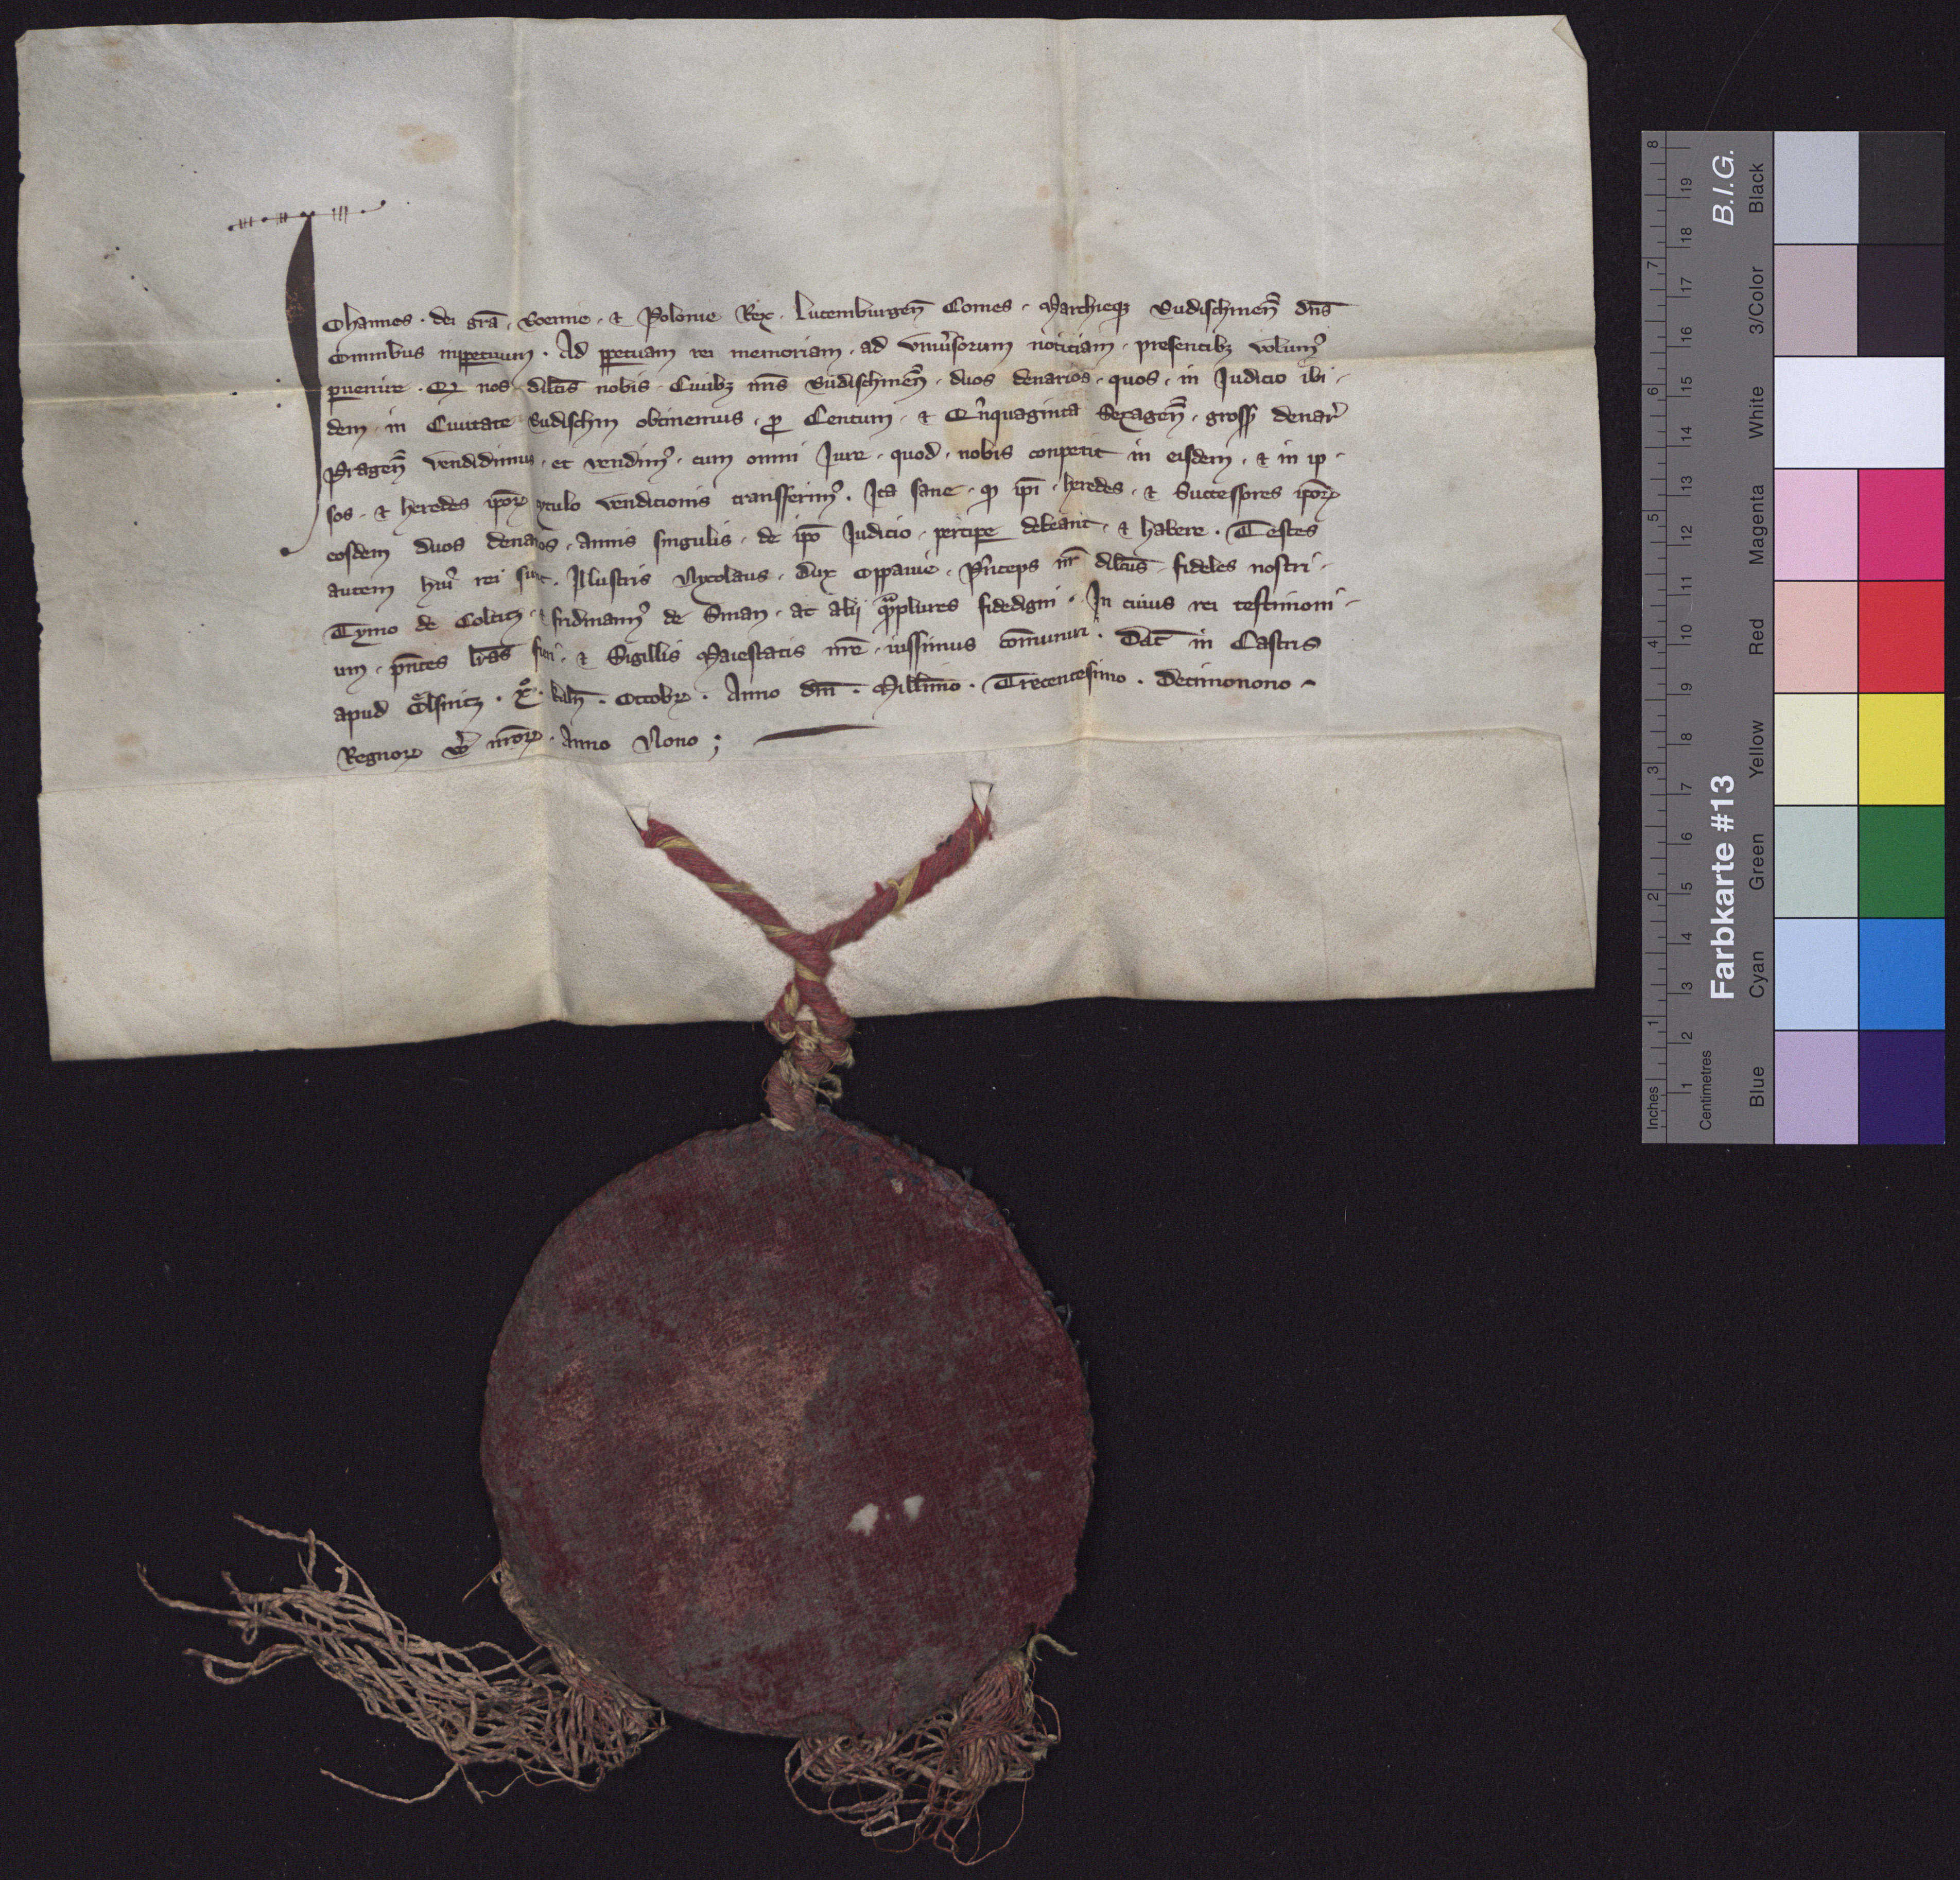 Johannes · dei gr̄a · Boemie · et Polonie Rex · Lucemburgen̄ Comes · Marchieqꝫ Budischinen̄ dn̄s
Omnibus inꝑpetuum · Ad ꝑpetuam rei memoriam · ad vniu'sorum notitiam · presentibꝫ volumꝰ
ꝑuenire · Qꝫ nos dilc̄is nobis Ciuibꝫ nr̄is Budischinen̄ · duos denarios · quos · in Judicio ibi ·
dem · in Ciuitate Budischin obtinemus · ꝓ Centum · et Qinquaginta Sexagen̄ · gross̄ denar'
Pragen̄ vendidimus · et vendimꝰ · cum omni Jure · quod · nobis conpetit in eisdem · et in ip ·
sos · et heredes ip̄oꝝ tytulo vendicionis transferimꝰ · Ita sane · qꝫ ip̄i · heredes · et Successores ip̄oꝝ
eosdem duos denarios · annis singulis · de ip̄o Judicio · percipe debeant · et habere · Testes
autem huiꝰ rei sunt · Illustris Nycolaus · dux Oppauie · Pinceps nr̄ dilc̄us · fideles nostri ·
Tymo de Coltitz · fridmannꝰ de Sman · ac alij qͣmplures fidedigni · In cuius rei testimoni -
um · pn̄tes lr̄as fieri · et Sigillis Maiestatis nr̄e · iussimus com̄uniri · Dat̄ in Castris
apud Olsnitz · xͦ · kaln̄ · Octobꝝ · Anno dn̄i · Mill̄imo · Trecentesimo · Decimonono -
Regnoꝝ vo' nr̄oꝝ · Anno Nono ;
B.I.G.
Farbkarte #13
Inches 1 2 3 4 5 6 7 8
Centimetres 1 2 3 4 5 6 7 8 9 10 11 12 13 14 15 16 17 18 19
Blue Cyan Green Yellow Red Magenta White 3/Color Black